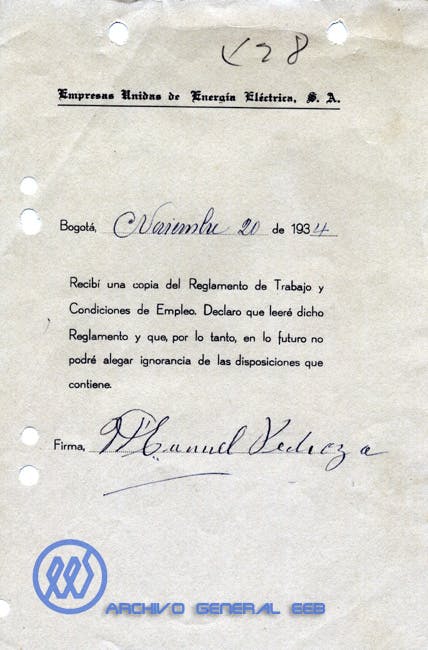 428
Empresas Unidas de Energía Eléctrica, S. A.
Bogotá, Noviembre 20 de 1934
Recibí una copia del Reglamento de Trabajo y
Condiciones de Empleo. Declaro que leeré dicho
Reglamento y que, por lo tanto, en lo futuro no
podré alegar ignorancia de las disposiciones que
contiene.
Firma, Manuel Pedroza
EEB
ARCHIVO GENERAL EEB